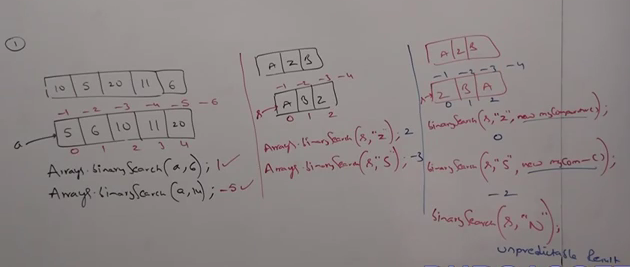 1
10 5 20 11 6
-1 -2 -3 -4 -5 -6
a 5 6 10 11 20
0 1 2 3 4
Arrays.binarySearch(a,6); 1 ✓
Arrays.binarySearch(a,14); -5 ✓
A Z B
-1 -2 -3 -4
s A B Z
0 1 2
Arrays.binarySearch(s,"Z"); 2
Arrays.binarySearch(s,"S"); -3
A Z B
-1 -2 -3 -4
s Z B A
0 1 2
binarySearch(s,"Z", new myComparator());
0
binarySearch(s,"S", new myCom-());
-2
binarySearch(s,"N");
unpredictable Result